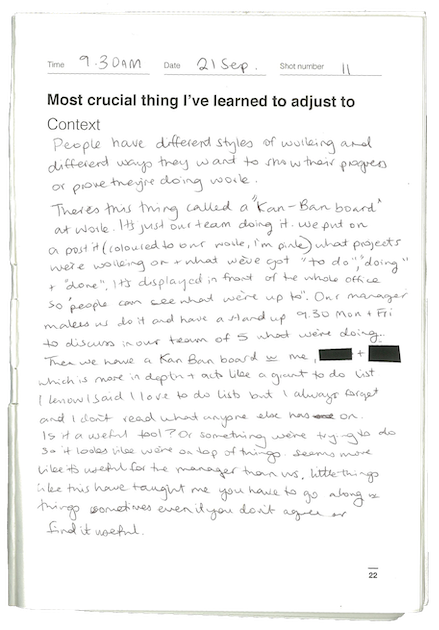 Time 9.30am Date 21 Sep. Shot number 11
Most crucial thing I've learned to adjust to
Context
People have differend styles of working and
differend ways they want to show their progress
or prove they're doing work.
Theres this thing called a "Kan-Ban board"
at work. Its just our team doing it. we put on
a post it (coloured to our work, I'm pink) what projects
we're working on + what we've got "to do", "doing"
+ "done". Its displayed in front of the whole office
so "people can see what we're up to". Our manager
makes us do it and have a stand up 9.30 Mon + Fri
to discuss in our team of 5 what we're doing..
Then we have a Kan Ban board w me, +
which is more in depth + acts like a giant to do list
I know I said I love to do lists but I always forget
and I don't read what anyone else has on.
Is it a useful tool? Or something we're trying to do
so it looks like we're on top of things. seems more
like its useful for the manager than us, little things
like this have taught me you have to go along w
things sometimes even if you don't agree or
find it useful.
22